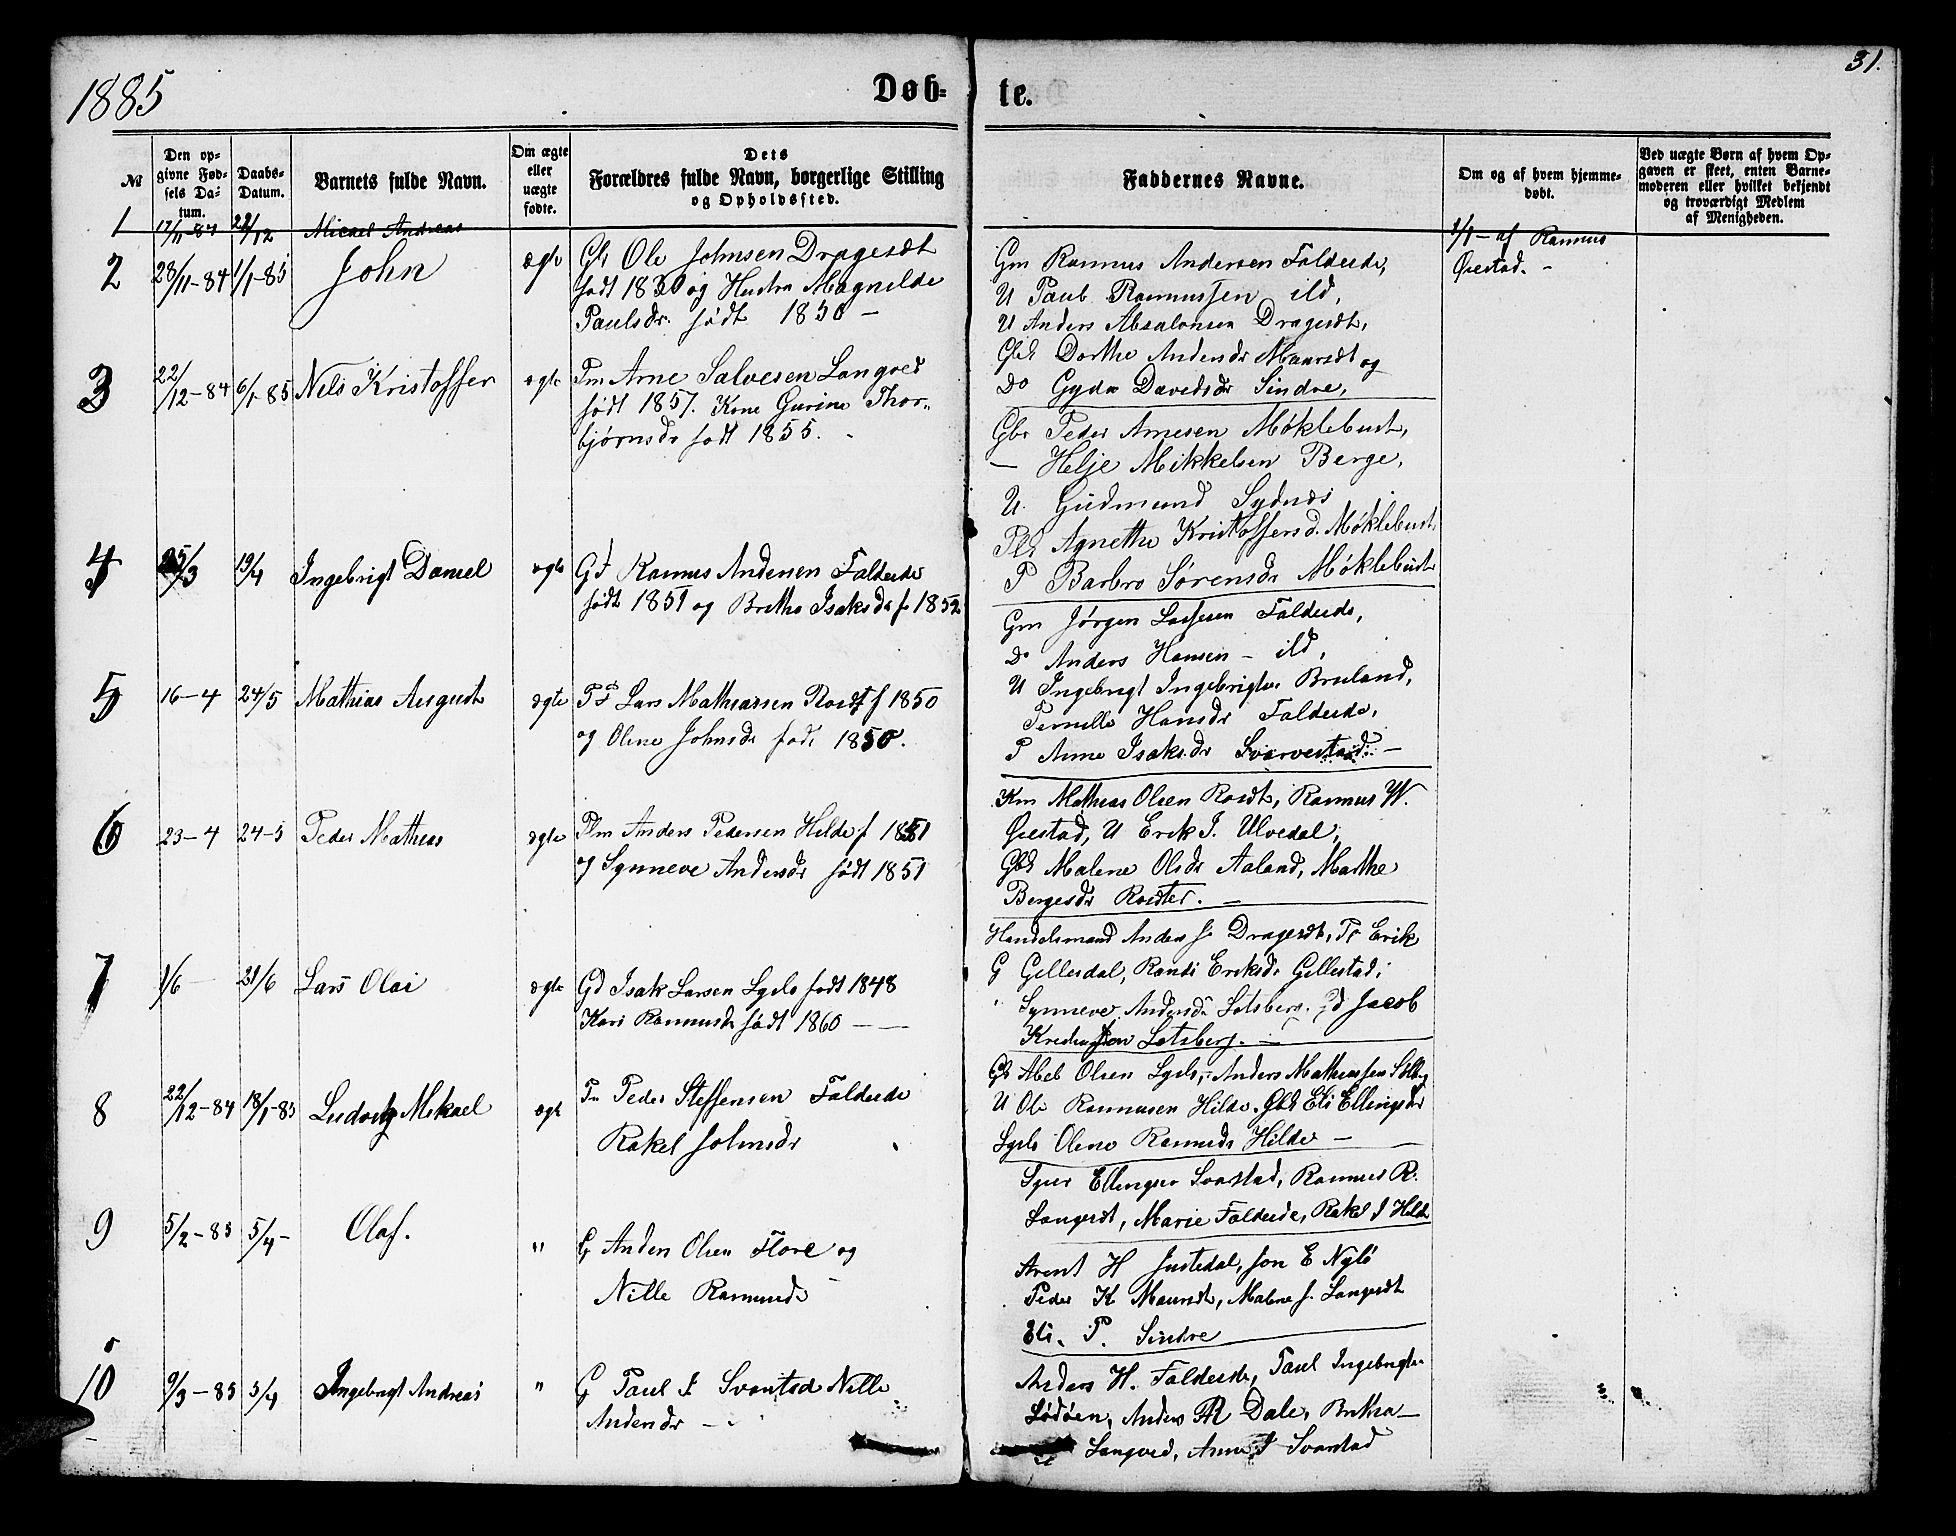 1885
Døb-
te.
31.
№
Den op-
givne Fød-
sels Da-
tum.
Daabs-
Datum.
Barnets fulde Navn.
Om ægte
eller
uægte
fødte.
Dets
Forældres fulde Navn, borgerlige Stilling
og Opholdssted.
Faddernes Navne.
Om og af hvem hjemme-
døbt.
Ved uægte Børn af hvem Op-
gaven er skeet, enten Barne-
moderen eller hvilket bekjendt
og troværdigt Medlem
af Menigheden.
1 17/11-84 /12 Micael Andreas
2 28/11-84 1/1-85 John ægte
Ole Johnsen Dragesdt
født 1830 og Hustru Magnilde
Paulsdr. født 1850 -
Gm Rasmus Andersen Falderde,
U Paul Rasmussen ild,
U Anders Absalonsen Dragesdt,
Dorthe Andersdr Maursdt og
Do Gyda Davidsdr Sindre,
1/1 - af Rasmus
Øvestad. -
3 22/12-84 6/1-85 Nels Kristoffer ægte
Pm Arne Salvesen Langved
født 1857. Kone Gurine Thor-
bjørnsdr født 1855.
Gbr Peder Arnesen Møklebust,
- Helje Mikkelsen Berge,
U. Gudmund Sydnæs
Agnethe Kristoffersd. Møklebust
P Barbro Sørensdr Møklebust
4 25/3 19/4 Ingebrigt Daniel ægte
Rasmus Andersen Falderde
født 1851 og Brithe Isaksdr f 1852
Gm Jørgen Lassesen Falderde,
Do Anders Hansen - ild,
U Ingebrigt Ingebrigtsn Bruland,
Pernille Hansdr Falderde,
P Anne Isaksdr Svarvestad. -
5 16-4 24/5 Mathias August ægte
Lars Mathiassen Rosdt f 1850
og Oline Johnsdr født 1850.
Km Mathias Olsen Rosdt, Rasmus W.
Øvestad, U Erik J. Ulvedal,
Malene Olsdr Aaland, Marthe
Bergesdr Rosdter. -
6 23-4 24-5 Peder Mathias ægte
Plm Anders Pedersen Hilde f 1851
og Synneve Andersdr født 1851
Handelsmand Anders J. Dragesdt, Erik
G Gellesdal, Randi Eriksdr Gellestad,
Synneve Andersdr Lotsberg. Jacob
Lotsberg. -
7 1/6 21/6 Lars Olai ægte
Isak Larsen Lyslo født 1848
Kari Rasmusdr født 1860 -
Abel Olsen Lyslo, - Anders Mathiassen
U Ole Rasmusen Hilde. Eli Ellingsdr
Lyslo Oline Rasmusdr Hilde -
8 22/12-84 18/1-85 Ludvig Mikael ægte
Peder Steffensen Falderde
Rakel Johnsdr
Ellingsen Svarstad, Rasmus R.
Langesdt, Marie Falderde, Rakel J Hilde
9 5/2-85 5/4- Olaf. "
G Anders Olsen Flore og
Nille Rasmusdr
Arent H Justedal, Jon E Nylø
Peder K Maursdt, Malene J. Langesdt
Eli. P. Sindre
10 9/3-85 5/4 Ingebrigt Andreas "
G Paul I Svarstad Nille
Andersdr -
Anders H. Falderde, Paul Ingebrigtsn
Lødøen, Anders R Dale, Britha
Langved, Anne I Svarstad